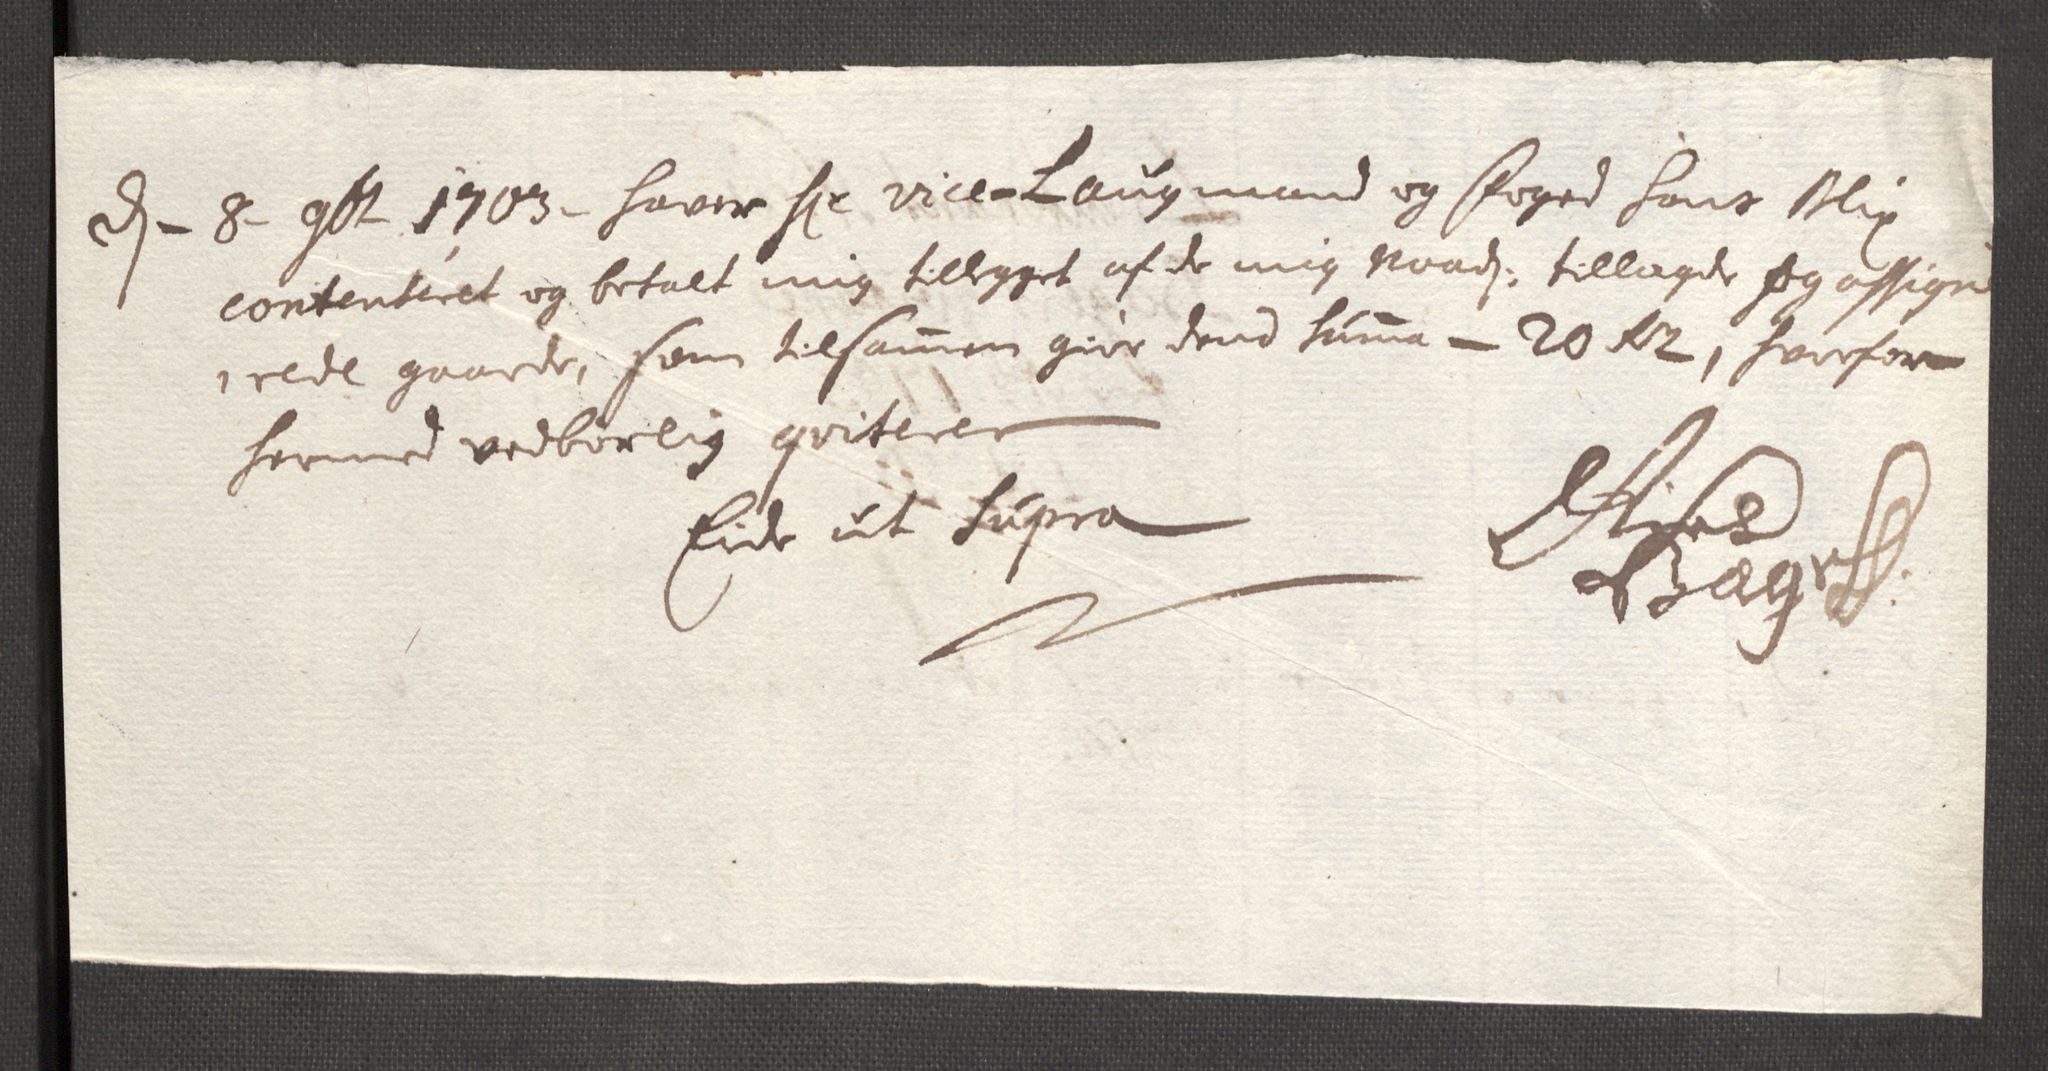 D. - 8 - 9br 1703 - haver Hr vice-Laugmand og foged Hans Blix
contenteret og betalt mig tillegget af de mig naad: tillagde og assigne
rede gaarde, som tilsamen giør dend Suma - 20 , hvorfor
hermed vedbørlig qviterer
Eide ut Supra
Bager